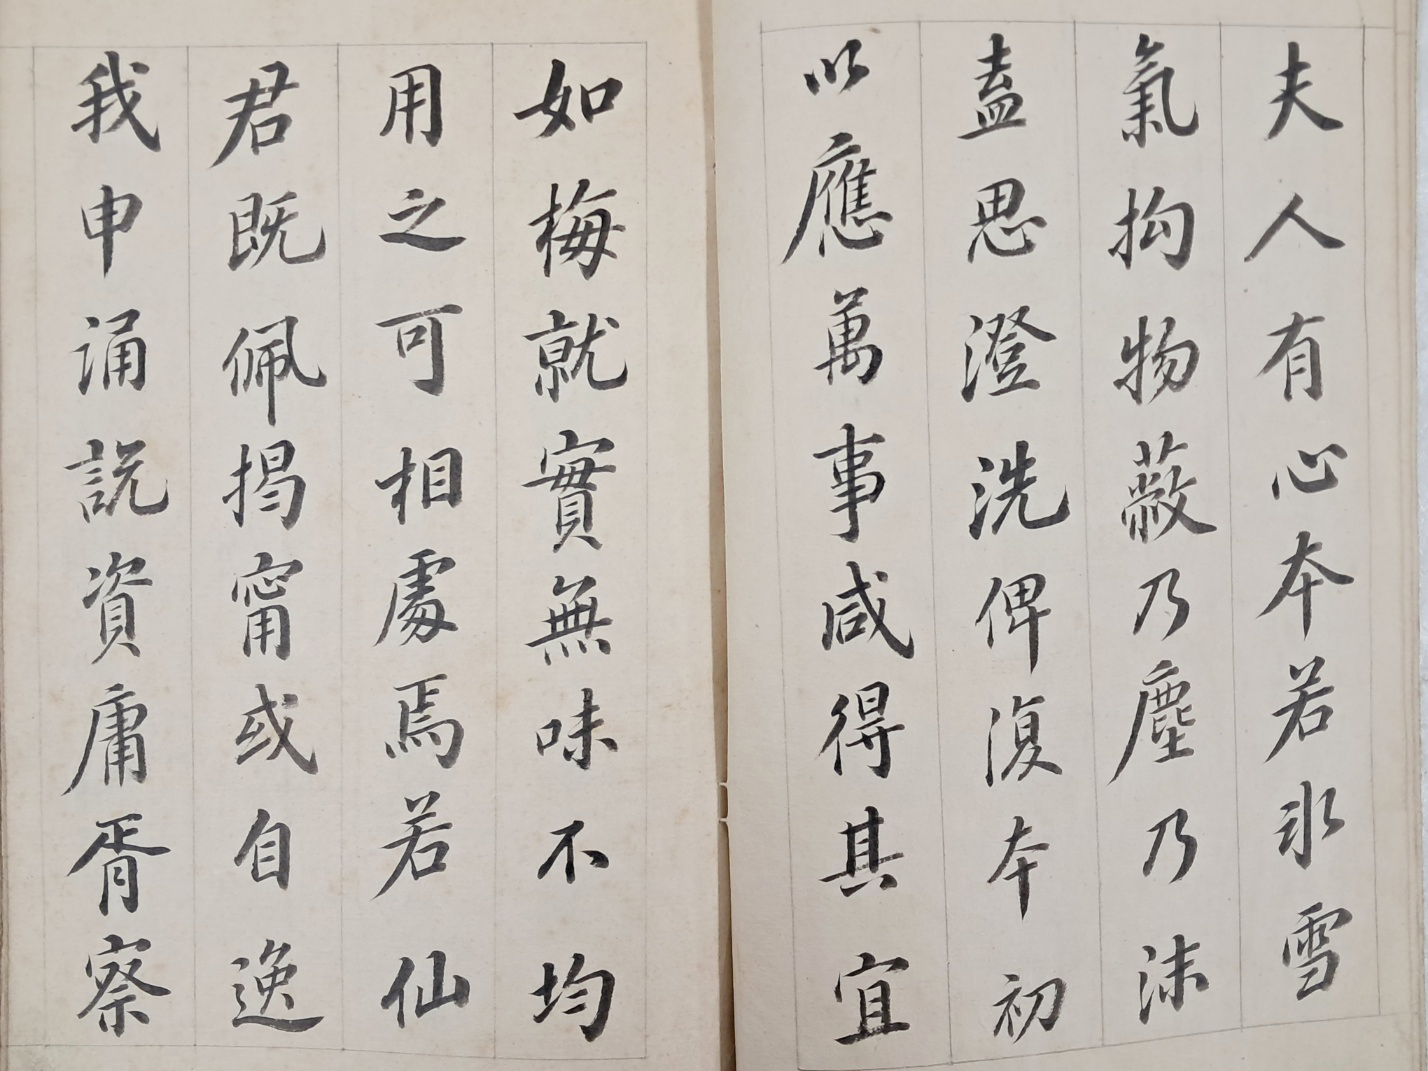 夫人有心本若氷雪
氣拘物蔽乃塵乃沬
盍思澄洗俾復本初
以應萬事咸得其宜
如梅就實無味不均
用之可相處焉若仙
君既佩揭甯或自逸
我申誦説資庸胥察